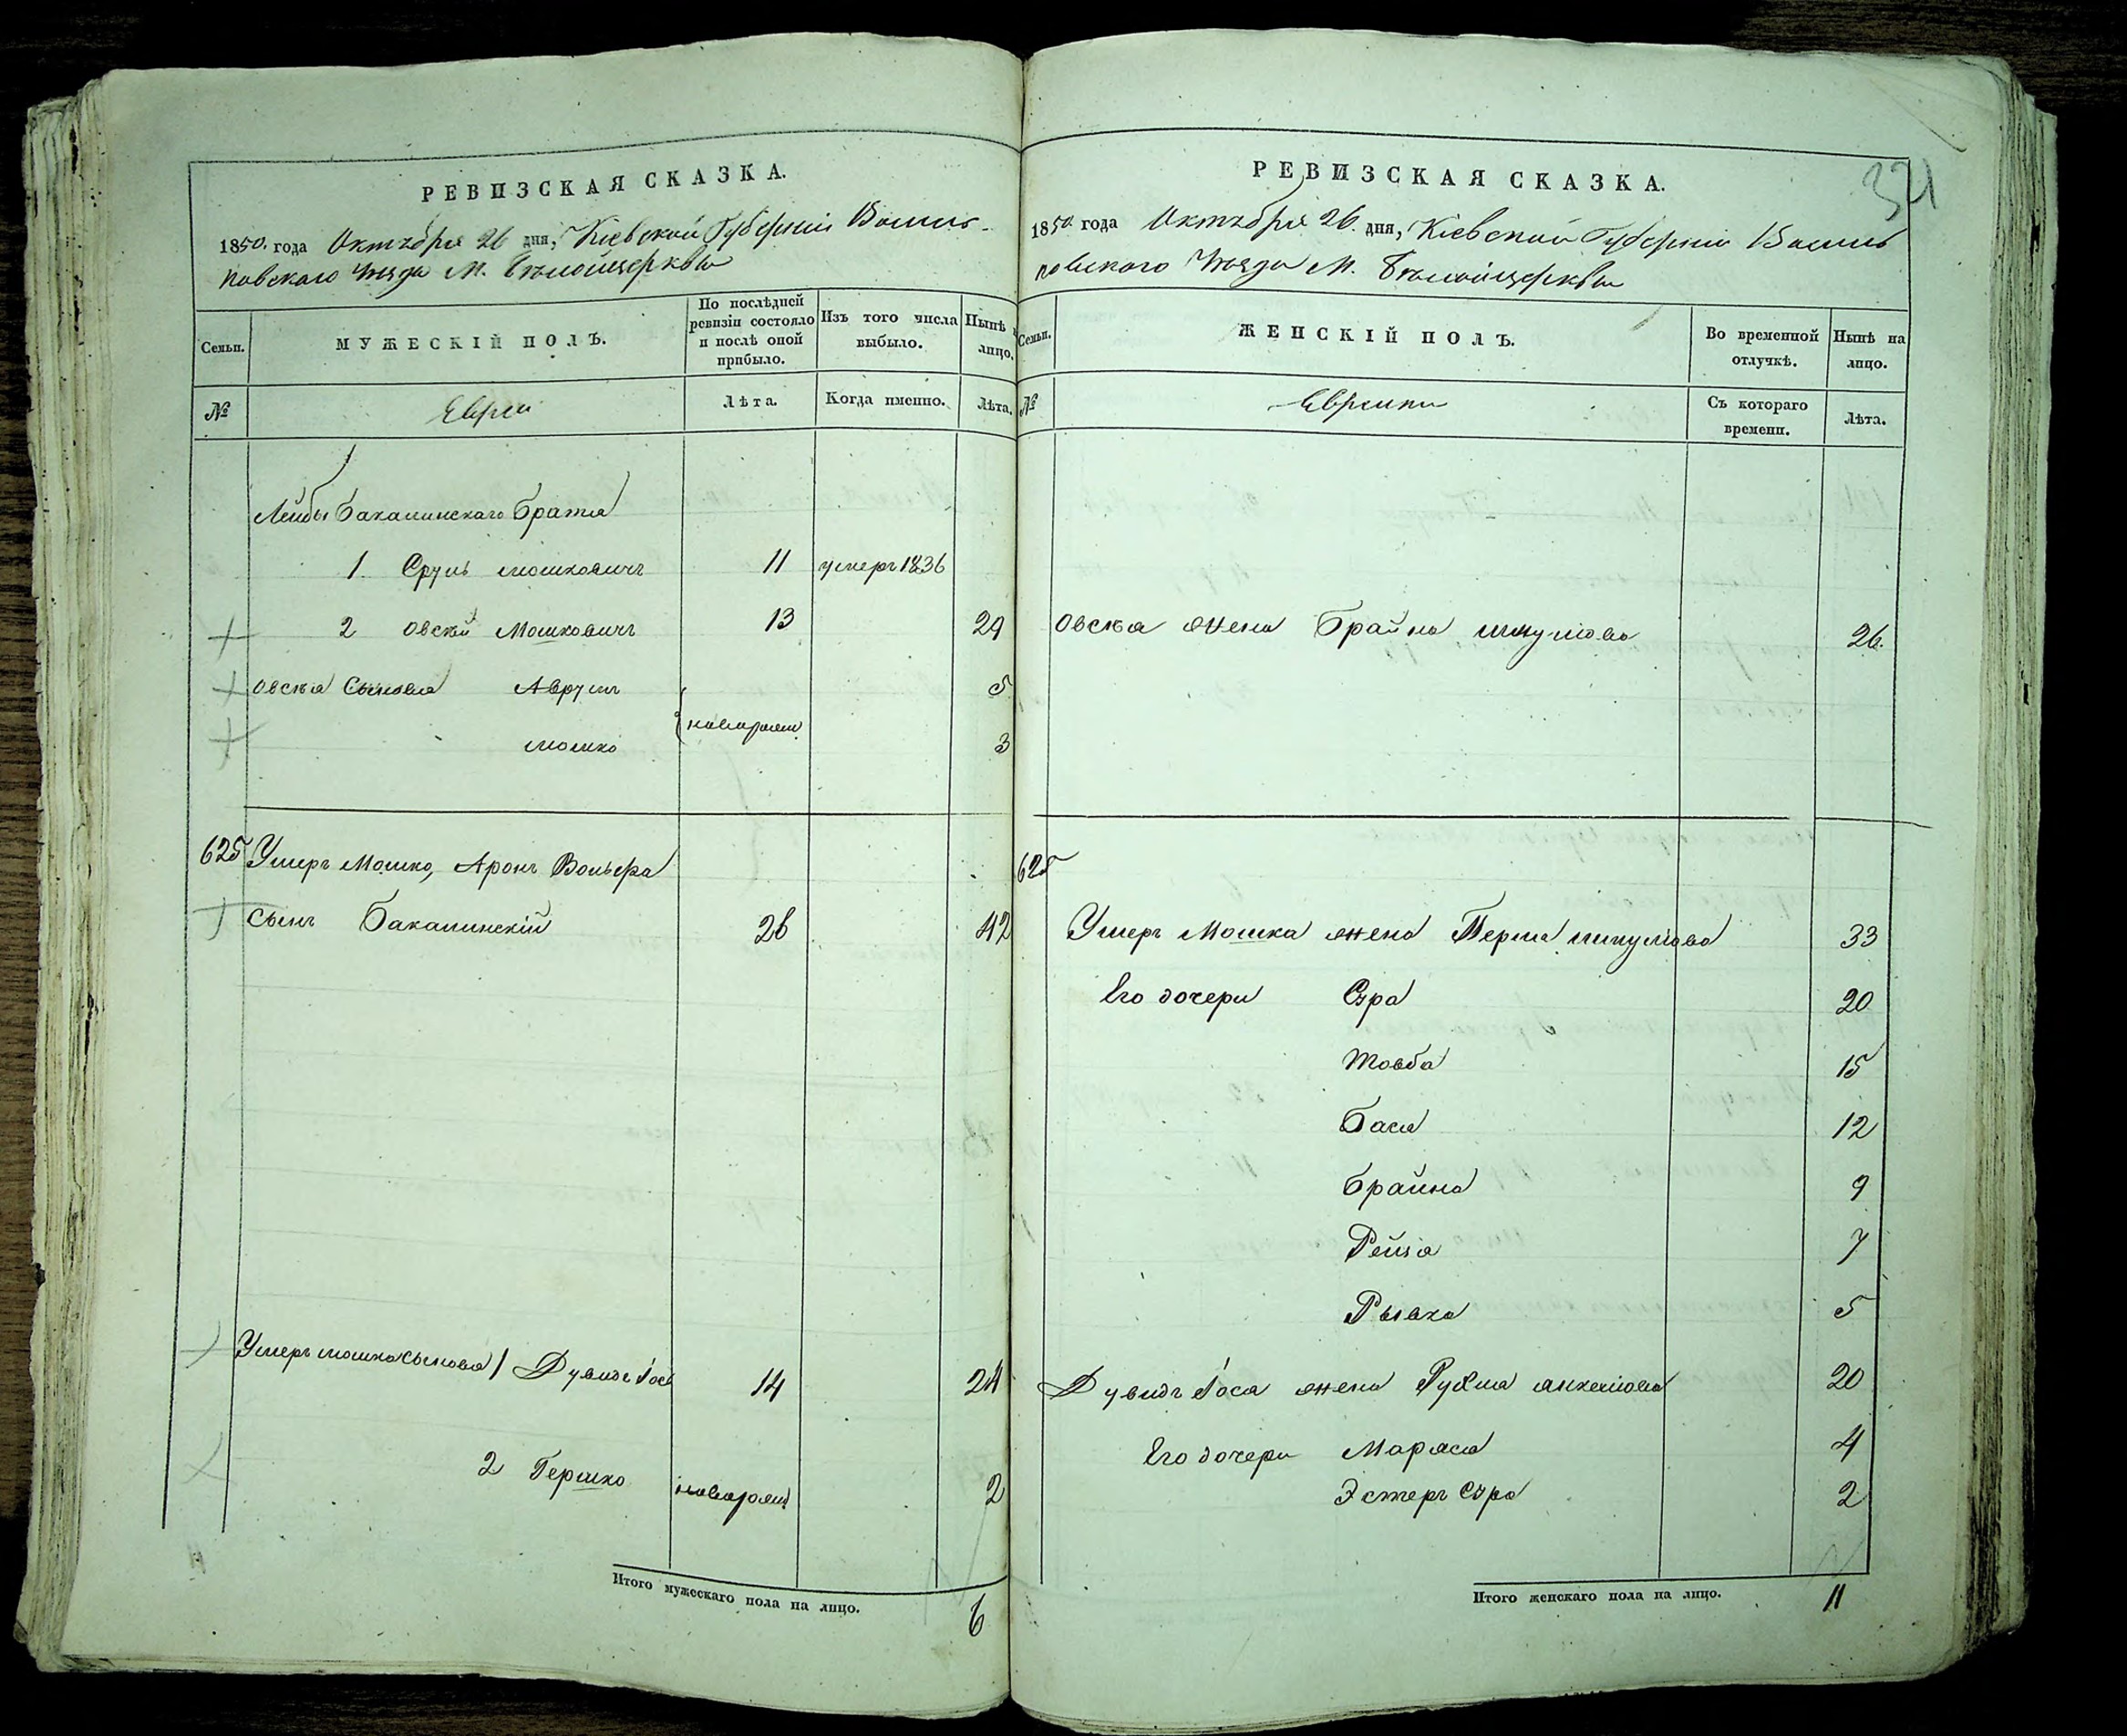 РЕВИЗСКАЯ СКАЗКА.
1850. года Октября 26 дня, Кіевской Губерніи Василь-
ковскаго Уѣзда М. Бѣлойцеркви
Семьи.
МУЖЕСКІЙ ПОЛЪ.
По послѣдней ревизіи состояло и послѣ оной прибыло.
Изъ того числа выбыло.
Нынѣ лицо.
№
Евреи
Лѣта.
Когда именно.
Лѣта.
Лейбы Бакалинскаго Братья
1 Сруль Мошковичъ 11 умеръ 1836
2 Овсѣй Мошковичъ 13 29
Овсѣя Сыновья Аврумъ 5
новорожд.
Мошко 3
625 Умеръ Мошко, Аронъ Вольфа
Сынъ Бакалинскій 26 42
Умеръ Мошка Сыновья 1 Дувидъ Іось 14 24
2 Гершко новорожд 2
Итого мужескаго пола на лицо. 6
321
РЕВИЗСКАЯ СКАЗКА.
1850 года Октября 26. дня, Кіевской Губерніи Василь
ковскаго Уѣзда М. Бѣлойцеркви
Семьи.
ЖЕНСКІЙ ПОЛЪ.
Во временной отлучкѣ.
Нынѣ на лицо.
№
Еврейки
Съ котораго времени.
Лѣта.
Овсѣя жена Брайна Шмулiова 26.
625
Умеръ Мошка жена Перля Шмулiова 33
Его дочери Сура 20
Товба 15
Бася 12
Брайна 9
Рейзя 7
Рывка 5
Дувидъ Іося жена Рухля Анкелiова 20
Его дочери Маряся 4
Эстеръ Сура 2
Итого женскаго пола на лицо. 11